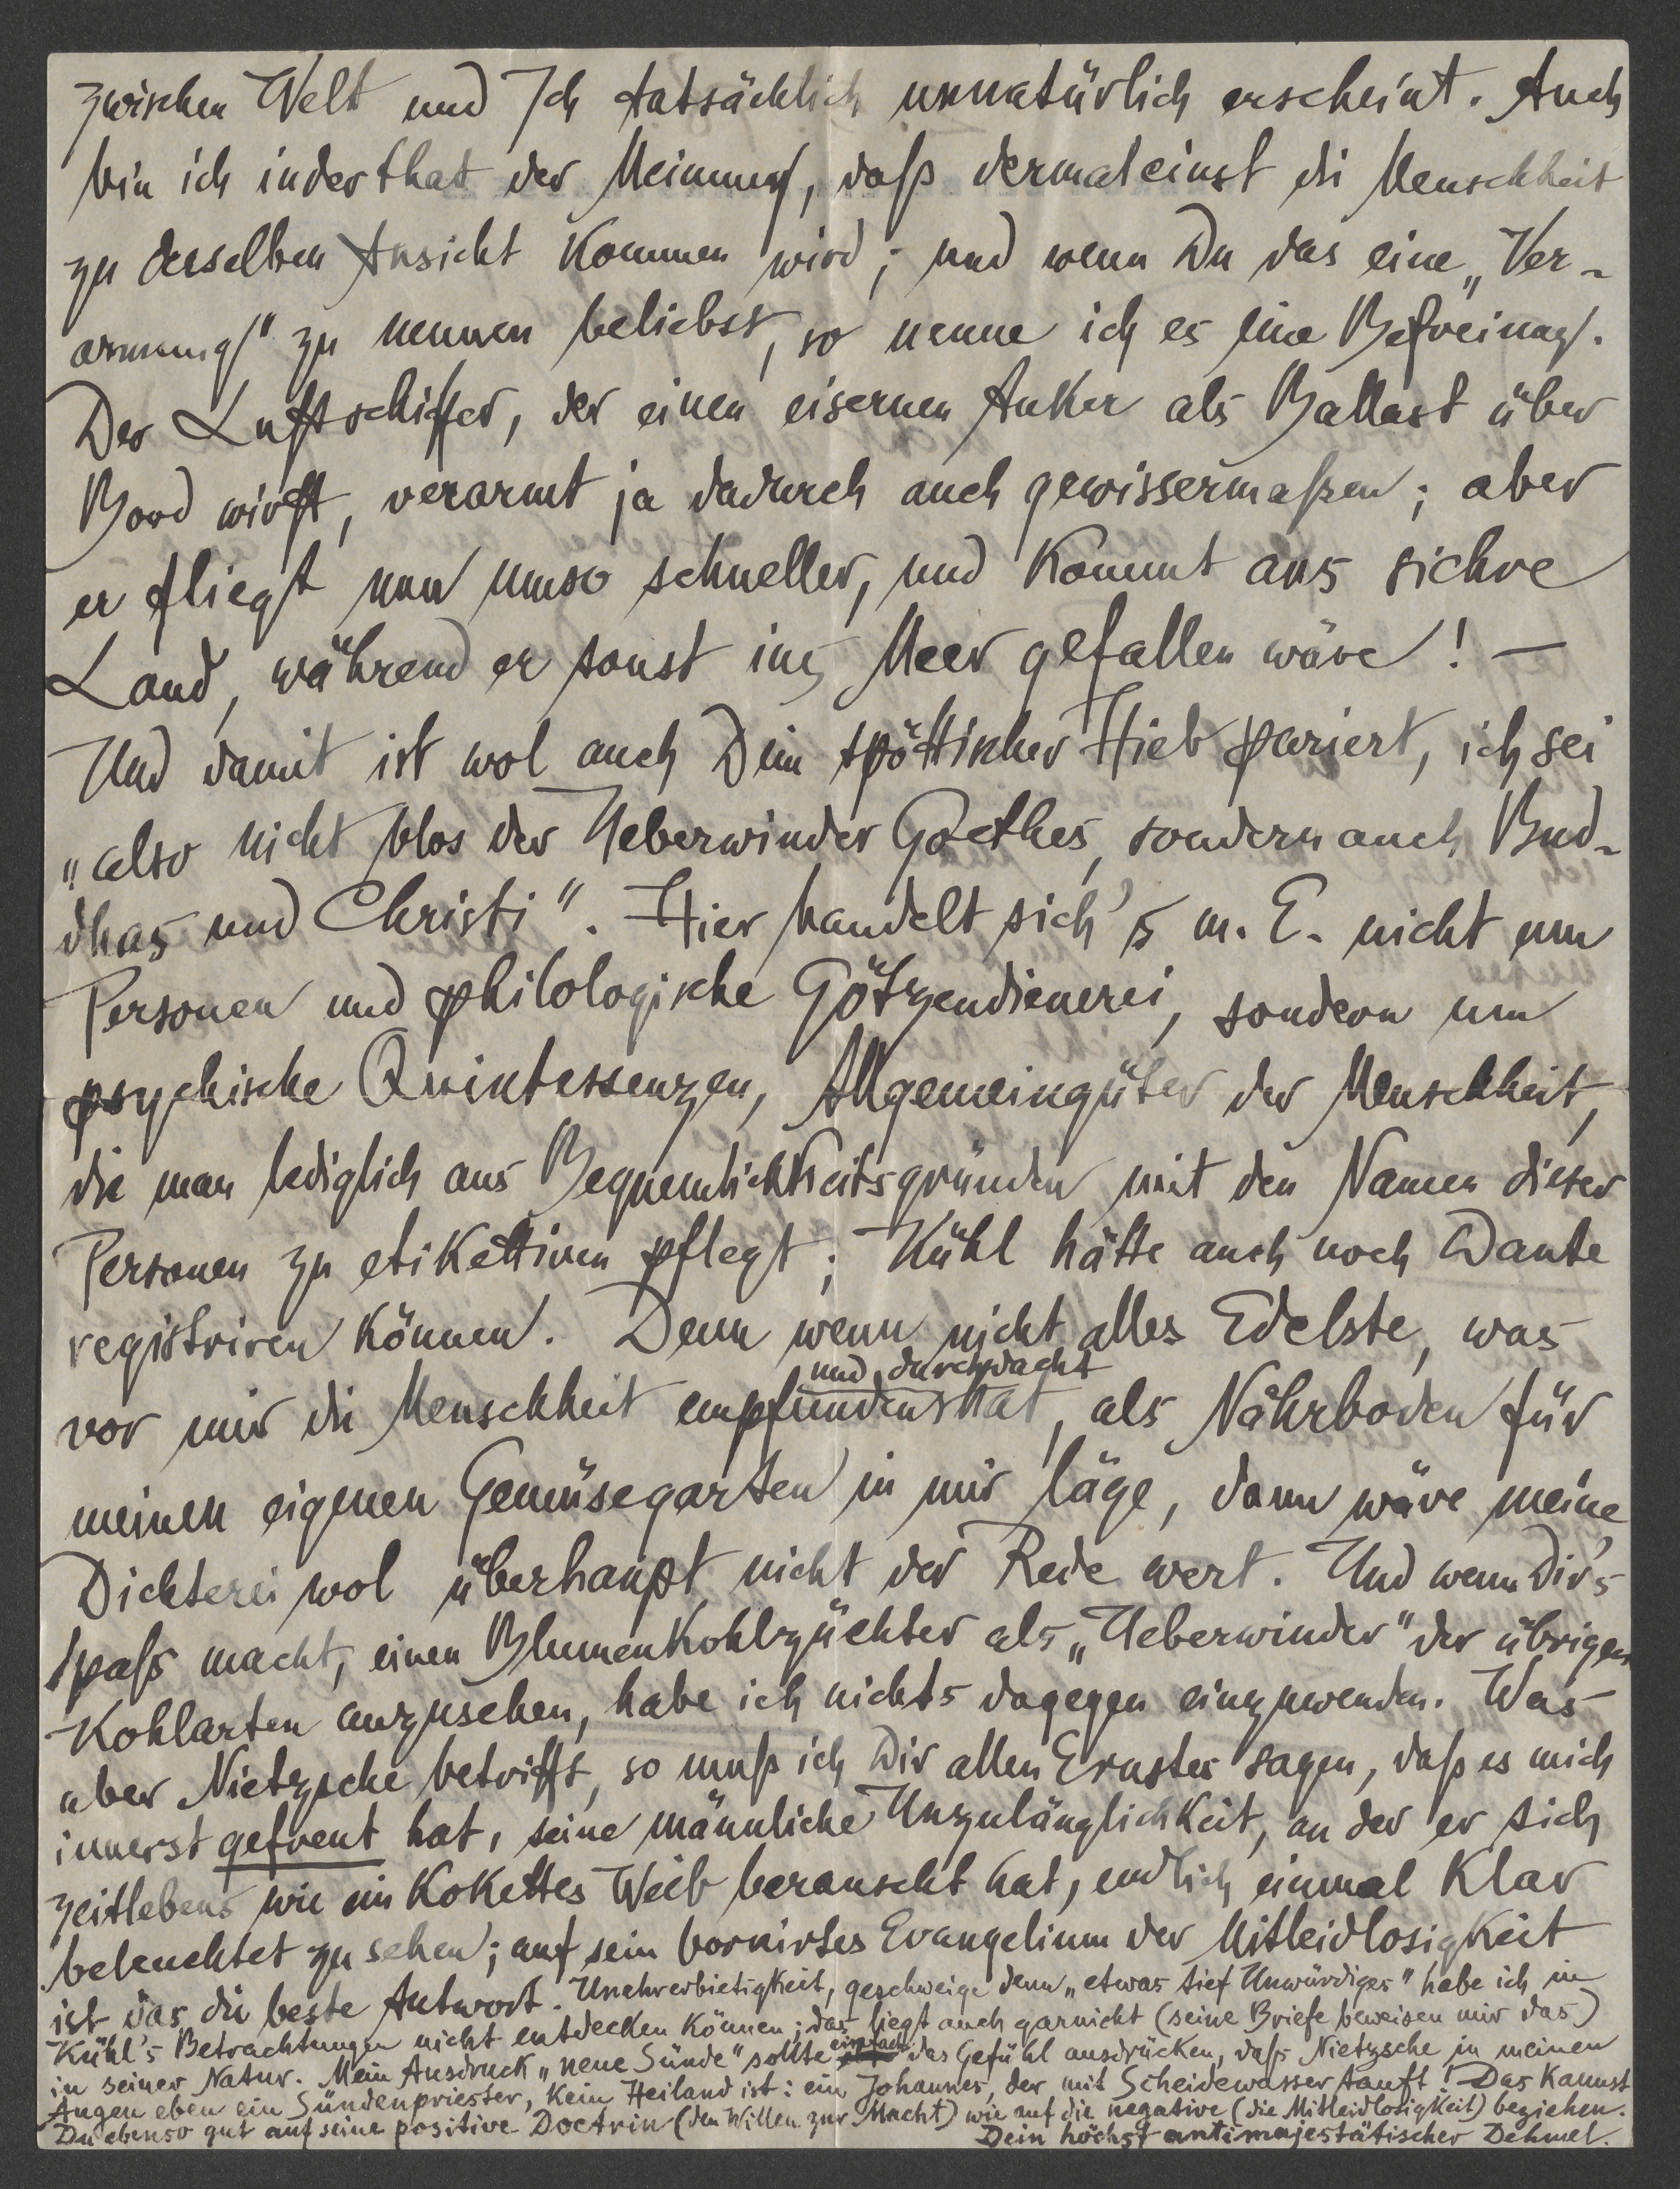 zwischen Welt und Ich tatsächlich unnatürlich erscheint. Auch
bin ich inderthat der Meinung, daß dermaleinst die Menschheit
zu derselben Ansicht kommen wird; und wenn Du das eine „Ver-
armung" zu nennen beliebst, so nenne ich es eine Befreiung.
Der Luftschiffer, der einen eisernen Anker als Ballast über
Bord wirft, verarmt ja dadurch auch gewissermaßen; aber
er fliegt nun umso schneller, und kommt ans sichre
Land, während er sonst ins Meer gefallen wäre! —
Und damit ist wol auch Dein spöttischer Hieb pariert, ich sei
„also nicht blos der Ueberwinder Goethes, sondern auch Bud-
dhas und Christi". Hier handelt sich's m. E. nicht um
Personen und philologische Götzendienerei, sondern um
psychische Quintessenzen, Allgemeingüter der Menschheit,
die man lediglich aus Bequemlichkeitsgründen mit den Namen dieser
Personen zu etikettiren pflegt; Kühl hätte auch noch Dante
registriren können. Denn wenn nicht alles Edelste, was
vor mir die Menschheit empfunden und durchdacht hat, als Nährboden für
meinen eigenen Gemüsegarten in mir läge, dann wäre meine
Dichterei wol überhaupt nicht der Rede wert. Und wenn Dir's
Spaß macht, einen Blumenkohlzüchter als „Ueberwinder" der übrigen
Kohlarten anzusehen, habe ich nichts dagegen einzuwenden. Was
aber Nietzsche betrifft, so muß ich Dir allen Ernstes sagen, daß es mich
innerst gefreut hat, seine männliche Unzulänglichkeit, an der er sich
zeitlebens wie ein kokettes Weib berauscht hat, endlich einmal klar
beleuchtet zu sehen; auf sein bornirtes Evangelium der Mitleidlosigkeit
ist das die beste Antwort. Unehrerbietigkeit, geschweige denn „etwas tief Unwürdiges" habe ich in
Kühl's Betrachtungen nicht entdecken können; das liegt auch garnicht (seine Briefe beweisen mir das)
in seiner Natur. Mein Ausdruck „neue Sünde" sollte einfach das Gefühl ausdrücken, daß Nietzsche in meinen
Augen eben ein Sündenpriester, kein Heiland ist: ein Johannes, der mit Scheidewasser tauft! Das kannst
Du ebenso gut auf seine positive Doctrin (den Willen zur Macht) wie auf die negative (die Mitleidlosigkeit) beziehen.
Dein höchst antimajestätischer Dehmel.